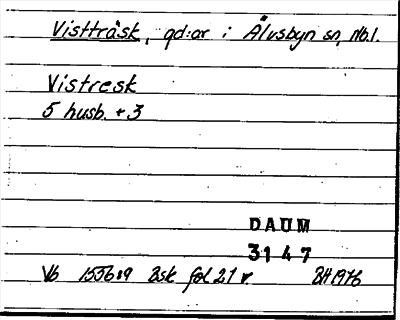 Vistträsk, gd:ar i Älvsbyn sn, Nb.l.
Vistresk
5 husb. + 3
DAUM
3147
Vb 1556:9 Bsk fol 21 v. BH 1976